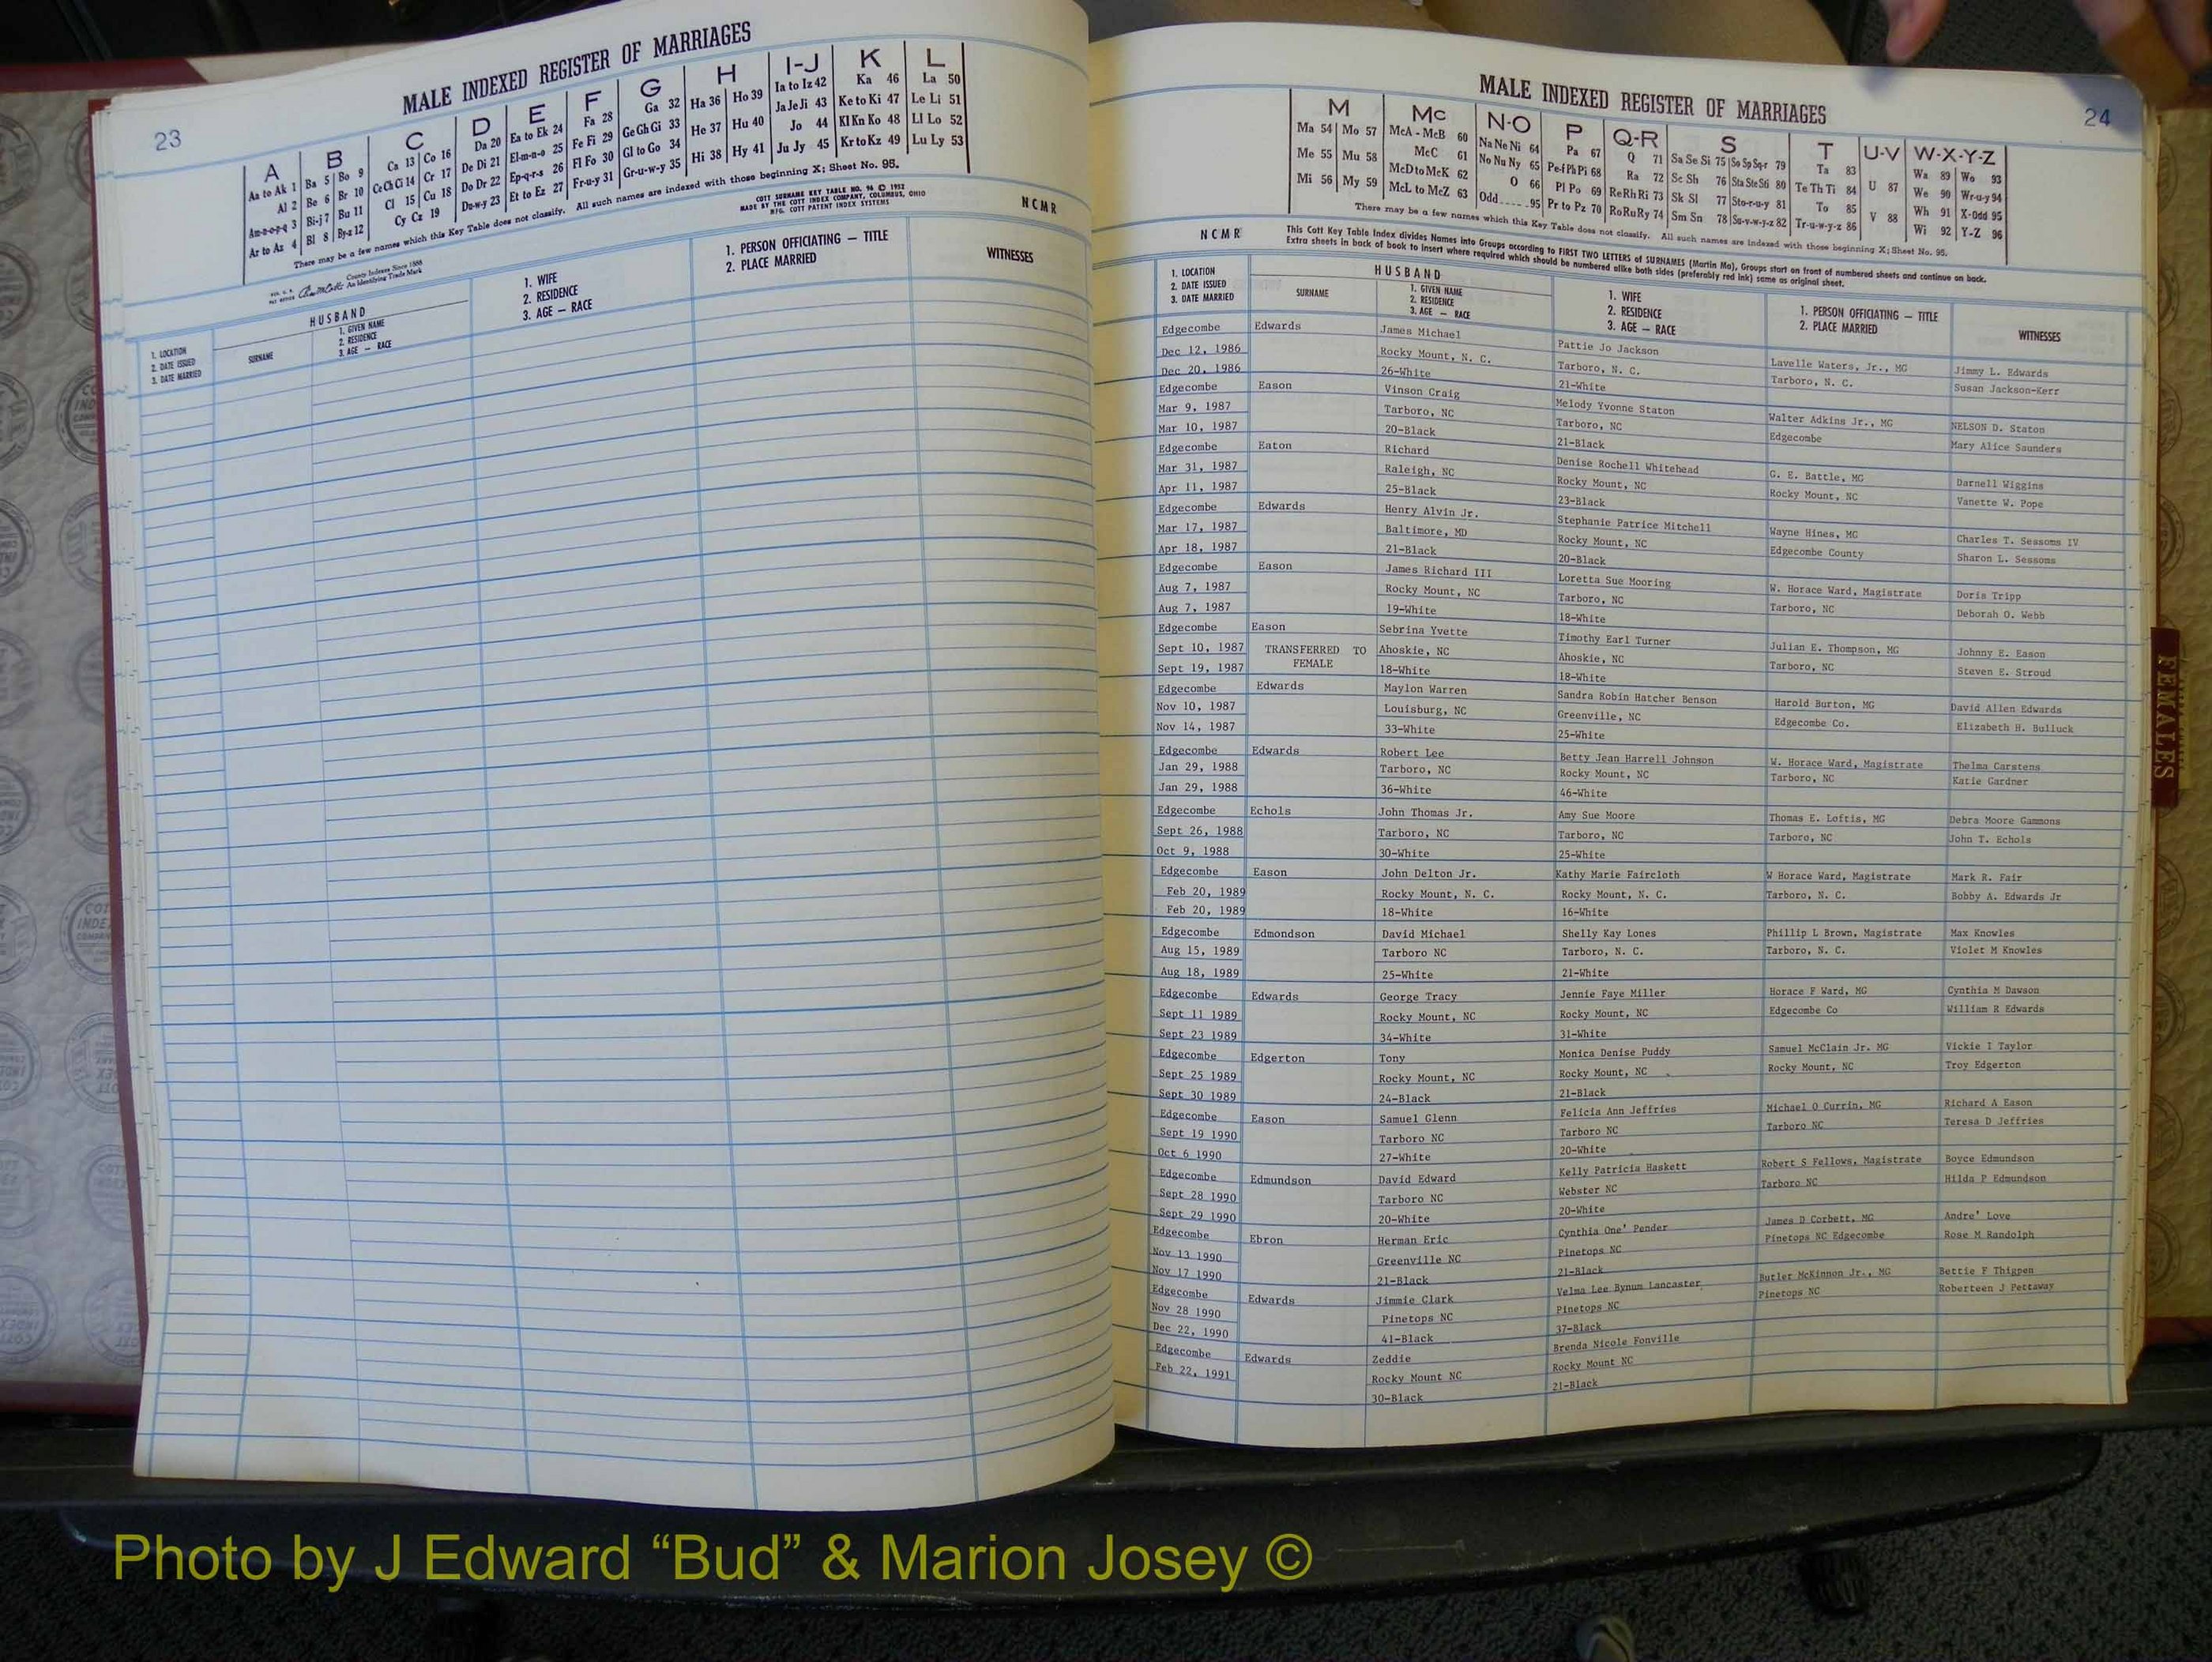 23
MALE INDEXED REGISTER OF MARRIAGES
A B C D E F G H I-J K L
Aa to Ak 1 Ba 5 Bo 9 Ca 13 Co 16 Da 20 Ea to Ek 24 Fa 28 Ga 32 Ha 36 Ho 39 Ia to Iz 42 Ka 46 La 50
Al 2 Be 6 Br 10 Ce Ch Ci 14 Cr 17 De Di 21 El-m-n-o 25 Fe Fi 29 Ge Gh Gi 33 He 37 Hu 40 Ja Je Ji 43 Ke to Ki 47 Le Li 51
Am-n-o-p-q 3 Bi-j 7 Bu 11 Cl 15 Cu 18 Do Dr 22 Ep-q-r-s 26 Fl Fo 30 Gl to Go 34 Hi 38 Hy 41 Jo 44 Kl Kn Ko 48 Ll Lo 52
Ar to Az 4 Bl 8 By-z 12 Cy Cz 19 Du-w-y 23 Et to Ez 27 Fr-u-y 31 Gr-u-w-y 35 Ju Jy 45 Kr to Kz 49 Lu Ly 53
There may be a few names which this Key Table does not classify. All such names are indexed with those beginning X; Sheet No. 95.
County Indexes Since 1888
An Identifying Trade Mark
COTT SURNAME KEY TABLE NO. 96 © 1952
MADE BY THE COTT INDEX COMPANY, COLUMBUS, OHIO
MFG. COTT PATENT INDEX SYSTEMS
NCMR
1. LOCATION
2. DATE ISSUED
3. DATE MARRIED
HUSBAND
SURNAME
1. GIVEN NAME
2. RESIDENCE
3. AGE — RACE
1. WIFE
2. RESIDENCE
3. AGE — RACE
1. PERSON OFFICIATING — TITLE
2. PLACE MARRIED
WITNESSES
MALE INDEXED REGISTER OF MARRIAGES
24
M Mc N-O P Q-R S T U-V W-X-Y-Z
Ma 54 Mo 57 McA - McB 60 Na Ne Ni 64 Pa 67 Q 71 Sa Se Si 75 So Sp Sq-r 79 Ta 83 Wa 89 Wo 93
Me 55 Mu 58 McC 61 No Nu Ny 65 Pe-f Ph Pi 68 Ra 72 Sc Sh 76 Sta Ste Sti 80 Te Th Ti 84 U 87 We 90 Wr-u-y 94
Mi 56 My 59 McD to McK 62 O 66 Pl Po 69 Re Rh Ri 73 Sk Sl 77 Sto-r-u-y 81 To 85 Wh 91 X-Odd 95
McL to McZ 63 Odd 95 Pr to Pz 70 Ro Ru Ry 74 Sm Sn 78 Su-v-w-y-z 82 Tr-u-w-y-z 86 V 88 Wi 92 Y-Z 96
There may be a few names which this Key Table does not classify. All such names are indexed with those beginning X; Sheet No. 95.
NCMR
This Cott Key Table Index divides Names into Groups according to FIRST TWO LETTERS of SURNAMES (Martin Ma), Groups start on front of numbered sheets and continue on back.
Extra sheets in back of book to insert where required which should be numbered alike both sides (preferably red ink) same as original sheet.
1. LOCATION
2. DATE ISSUED
3. DATE MARRIED
HUSBAND
SURNAME
1. GIVEN NAME
2. RESIDENCE
3. AGE — RACE
1. WIFE
2. RESIDENCE
3. AGE — RACE
1. PERSON OFFICIATING — TITLE
2. PLACE MARRIED
WITNESSES
Edgecombe Edwards James Michael Pattie Jo Jackson Lavelle Waters, Jr., MG Jimmy L. Edwards
Dec 12, 1986 Rocky Mount, N. C. Tarboro, N. C. Tarboro, N. C. Susan Jackson-Kerr
Dec 20, 1986 26-White 21-White
Edgecombe Eason Vinson Craig Melody Yvonne Staton Walter Adkins Jr., MG NELSON D. Staton
Mar 9, 1987 Tarboro, NC Tarboro, NC Edgecombe Mary Alice Saunders
Mar 10, 1987 20-Black 21-Black
Edgecombe Eaton Richard Denise Rochell Whitehead G. E. Battle, MG Darnell Wiggins
Mar 31, 1987 Raleigh, NC Rocky Mount, NC Rocky Mount, NC Vanette W. Pope
Apr 11, 1987 25-Black 23-Black
Edgecombe Edwards Henry Alvin Jr. Stephanie Patrice Mitchell Wayne Hines, MG Charles T. Sessoms IV
Mar 17, 1987 Baltimore, MD Rocky Mount, NC Edgecombe County Sharon L. Sessoms
Apr 18, 1987 21-Black 20-Black
Edgecombe Eason James Richard III Loretta Sue Mooring W. Horace Ward, Magistrate Doris Tripp
Aug 7, 1987 Rocky Mount, NC Tarboro, NC Tarboro, NC Deborah O. Webb
Aug 7, 1987 19-White 18-White
Edgecombe Eason Sebrina Yvette Timothy Earl Turner Julian E. Thompson, MG Johnny E. Eason
Sept 10, 1987 TRANSFERRED TO Ahoskie, NC Ahoskie, NC Tarboro, NC Steven E. Stroud
Sept 19, 1987 FEMALE 18-White 18-White
Edgecombe Edwards Maylon Warren Sandra Robin Hatcher Benson Harold Burton, MG David Allen Edwards
Nov 10, 1987 Louisburg, NC Greenville, NC Edgecombe Co. Elizabeth H. Bulluck
Nov 14, 1987 33-White 25-White
Edgecombe Edwards Robert Lee Betty Jean Harrell Johnson W. Horace Ward, Magistrate Thelma Carstens
Jan 29, 1988 Tarboro, NC Rocky Mount, NC Tarboro, NC Katie Gardner
Jan 29, 1988 36-White 46-White
Edgecombe Echols John Thomas Jr. Amy Sue Moore Thomas E. Loftis, MG Debra Moore Gammons
Sept 26, 1988 Tarboro, NC Tarboro, NC Tarboro, NC John T. Echols
Oct 9, 1988 30-White 25-White
Edgecombe Eason John Delton Jr. Kathy Marie Faircloth W Horace Ward, Magistrate Mark R. Fair
Feb 20, 1989 Rocky Mount, N. C. Rocky Mount, N. C. Tarboro, N. C. Bobby A. Edwards Jr
Feb 20, 1989 18-White 16-White
Edgecombe Edmondson David Michael Shelly Kay Lones Phillip L Brown, Magistrate Max Knowles
Aug 15, 1989 Tarboro NC Tarboro, N. C. Tarboro, N. C. Violet M Knowles
Aug 18, 1989 25-White 21-White
Edgecombe Edwards George Tracy Jennie Faye Miller Horace F Ward, MG Cynthia M Dawson
Sept 11 1989 Rocky Mount, NC Rocky Mount, NC Edgecombe Co William R Edwards
Sept 23 1989 34-White 31-White
Edgecombe Edgerton Tony Monica Denise Puddy Samuel McClain Jr. MG Vickie I Taylor
Sept 25 1989 Rocky Mount, NC Rocky Mount, NC Rocky Mount, NC Troy Edgerton
Sept 30 1989 24-Black 21-Black
Edgecombe Eason Samuel Glenn Felicia Ann Jeffries Michael O Currin, MG Richard A Eason
Sept 19 1990 Tarboro NC Tarboro NC Tarboro NC Teresa D Jeffries
Oct 6 1990 27-White 20-White
Edgecombe Edmundson David Edward Kelly Patricia Haskett Robert S Fellows, Magistrate Boyce Edmundson
Sept 28 1990 Tarboro NC Webster NC Tarboro NC Hilda P Edmundson
Sept 29 1990 20-White 20-White
Edgecombe Ebron Herman Eric Cynthia One' Pender James D Corbett, MG Andre' Love
Nov 13 1990 Greenville NC Pinetops NC Pinetops NC Edgecombe Rose M Randolph
Nov 17 1990 21-Black 21-Black
Edgecombe Edwards Jimmie Clark Velma Lee Bynum Lancaster Butler McKinnon Jr., MG Bettie F Thigpen
Nov 28 1990 Pinetops NC Pinetops NC Pinetops NC Roberteen J Pettaway
Dec 22, 1990 41-Black 37-Black
Edgecombe Edwards Zeddie Brenda Nicole Fonville
Feb 22, 1991 Rocky Mount NC Rocky Mount NC
30-Black 21-Black
FEMALES
Photo by J Edward “Bud” & Marion Josey ©